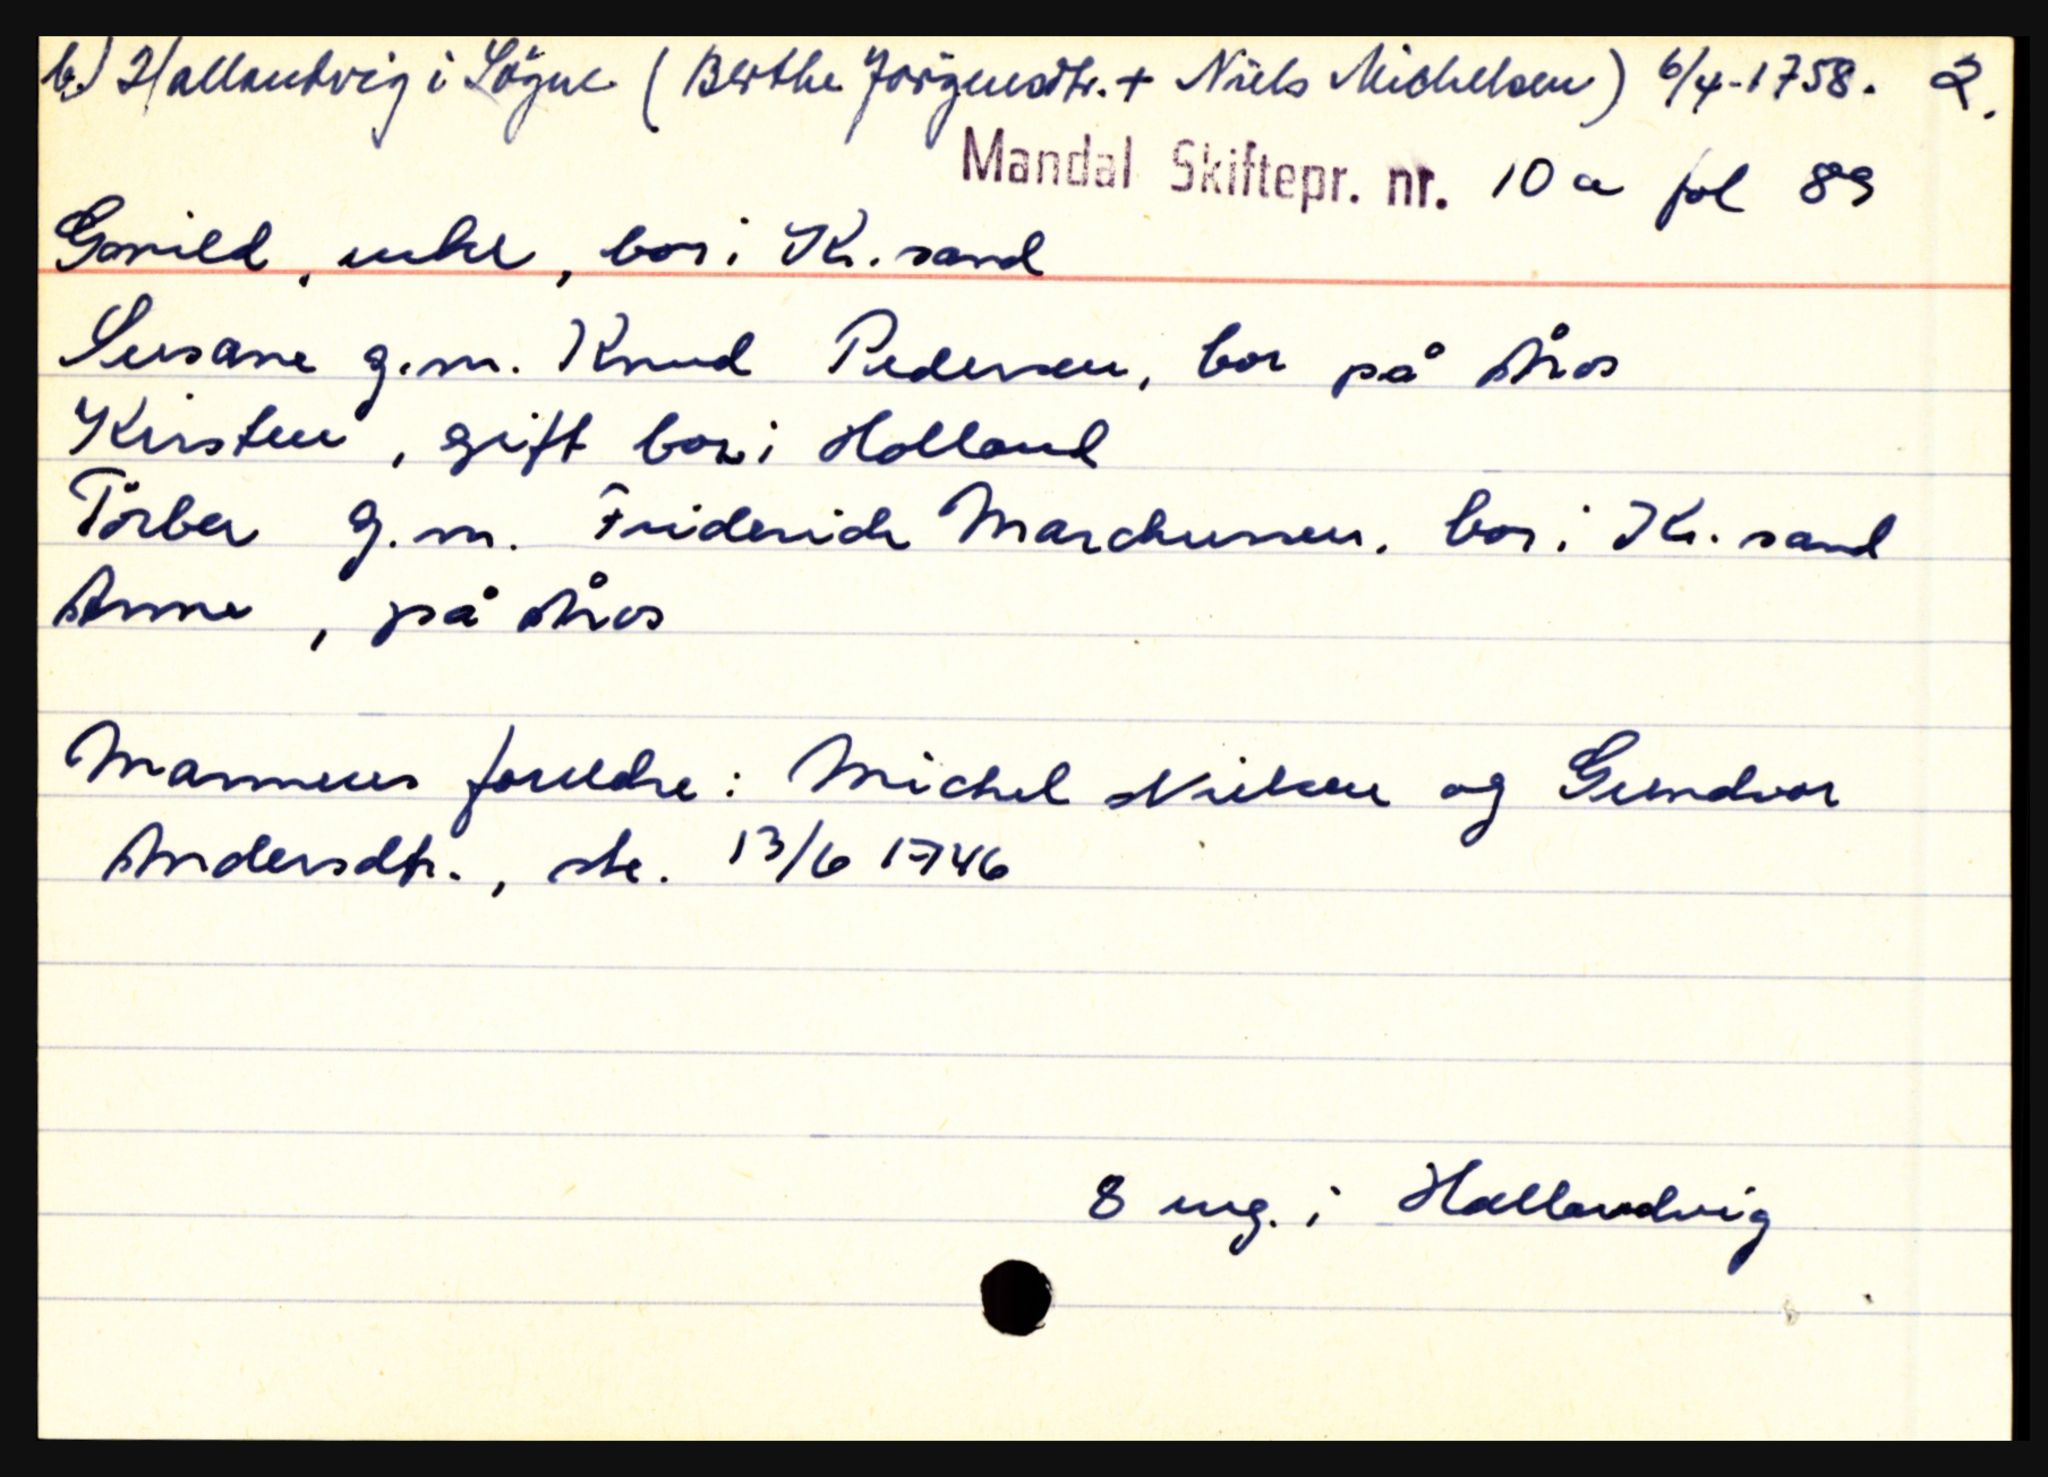 b.) Hallandvig i Søgne (Berthe Jörgensdtr. + Niels Michelsen) 6/4-1758. 2.
Mandal Skiftepr. nr. 10 a fol 89
Gonild, enke, bor i Kr.sand
Susane g.m. Knud Pedersen, bor på Åros
Kirsten, gift bor i Holland
Törber g.m. Friderich Marchussen, bor i Kr.sand
Anne, på Åros
Mannens foreldre: Michel Nielsen og Gundvor
Andersdtr., ske. 13/6 1746
8 eng. i Hallandvig